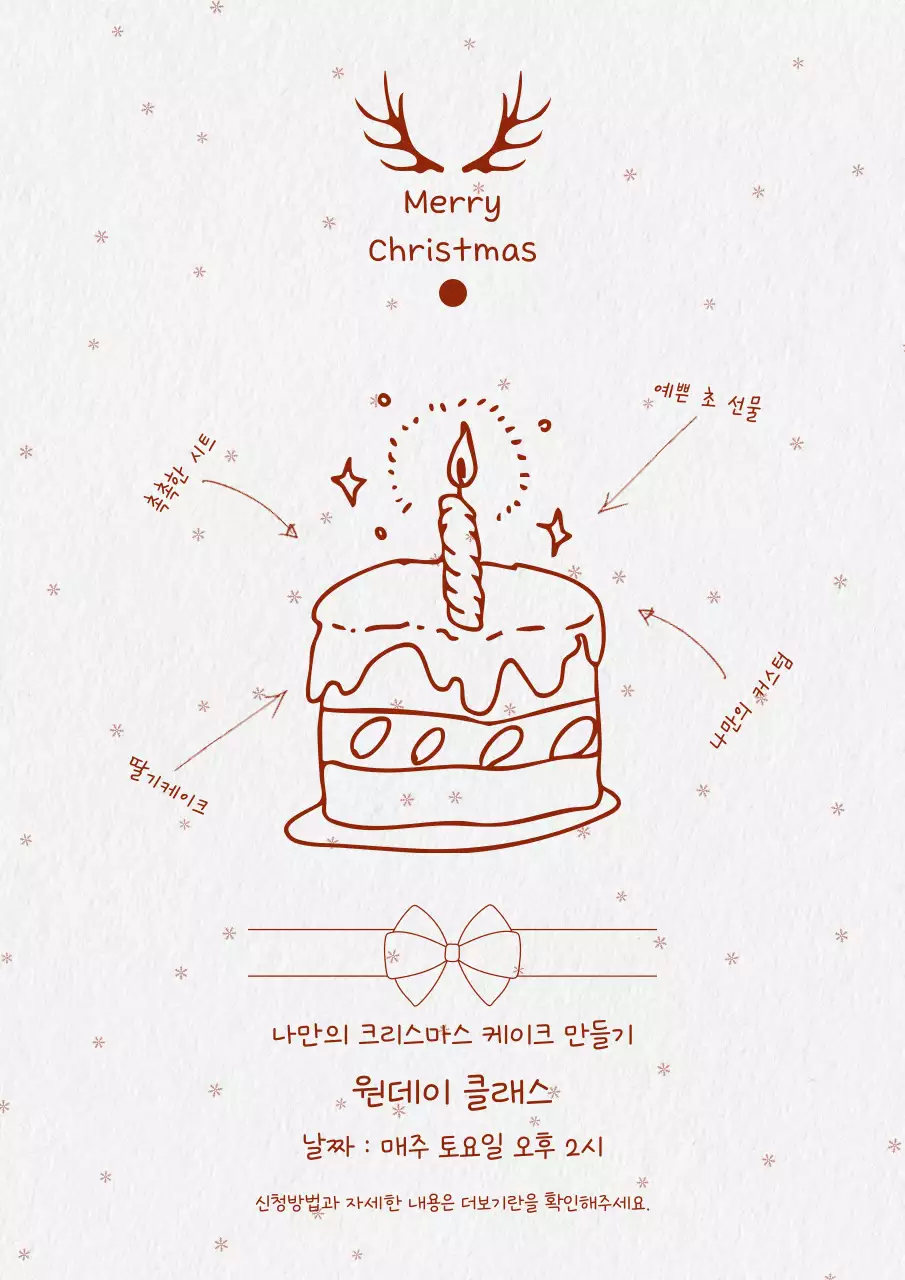 Merry
Christmas
예쁜 초 선물
촉촉한 시트
나만의 커스텀
딸기케이크
나만의 크리스마스 케이크 만들기
원데이 클래스
날짜 : 매주 토요일 오후 2시
신청방법과 자세한 내용은 더보기란을 확인해주세요.